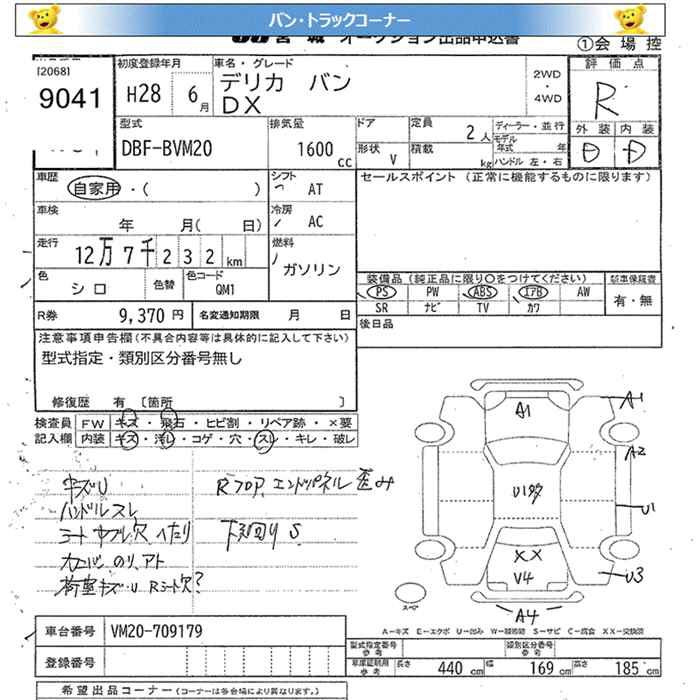 バン・トラックコーナー
宮城 オークション出品申込書
①会場控
[2068]
9041
初度登録年月
H28 6月
車名・グレード
デリカ バン
DX
2WD
・
4WD
評価点
R
外装 内装
D D
型式
DBF-BVM20
排気量
1600 cc
ドア
定員
2人
ディーラー・並行
モデル年式 年
形状
V
積載
kg
ハンドル 左・右
車歴
自家用・( )
シフト
AT
セールスポイント (正常に機能するものに限ります)
車検
年 月( 日)
冷房
AC
走行
12万7千232km
燃料
ガソリン
色
シロ
色替
色コード
QM1
装備品(純正品に限り○をつけてください)
PS PW ABS エアB AW
SR ナビ TV カワ
新車保証書
有・無
R券 9,370円
名変通知期限 月 日
後日品
注意事項申告欄(不具合内容等は具体的に記入して下さい)
型式指定・類別区分番号無し
修復歴 有 〔箇所 〕
検査員記入欄
FW キズ・飛石・ヒビ割・リペア跡・×要
内装 キズ・汚レ・コゲ・穴・スレ・キレ・破レ
キズU
ハンドルスレ
シートヨゴレ穴、ヘタリ
荷室キズ・U Rシート欠?
Rフロア、エンドパネル歪み
下回りS
A1
A1
A2
U1
U3
XX
V4
A4
スペア
A-キズ E-エクボ U-凹み W-補修跡 S-サビ C-腐食 XX-交換済
車台番号 VM20-709179
登録番号
型式指定番号
参考
類別区分番号
参考
車庫証明用
参考
長さ 440cm 幅 169cm 高さ 185cm
希望出品コーナー(コーナーは各会場により異なります。)